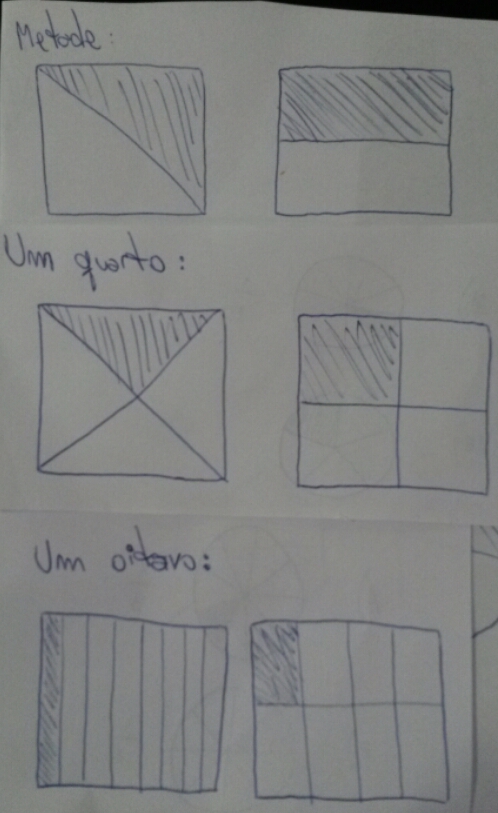 Metade:
Um quarto:
Um oitavo: